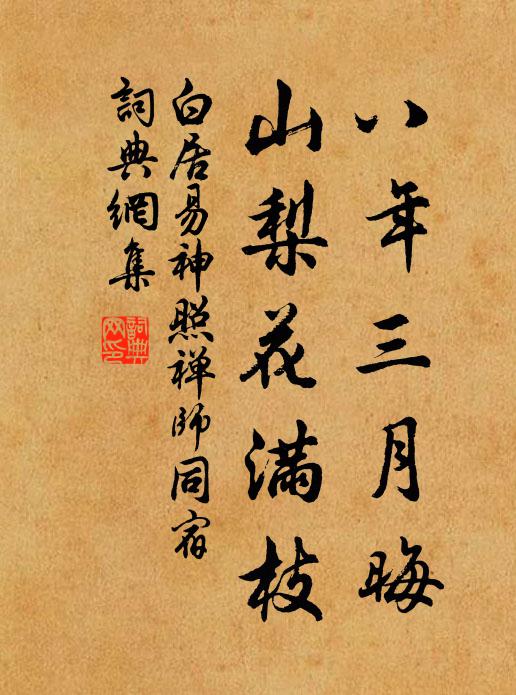 八年三月晦
山梨花满枝
白居易神照禅师同宿
詞典網集
詞典網印